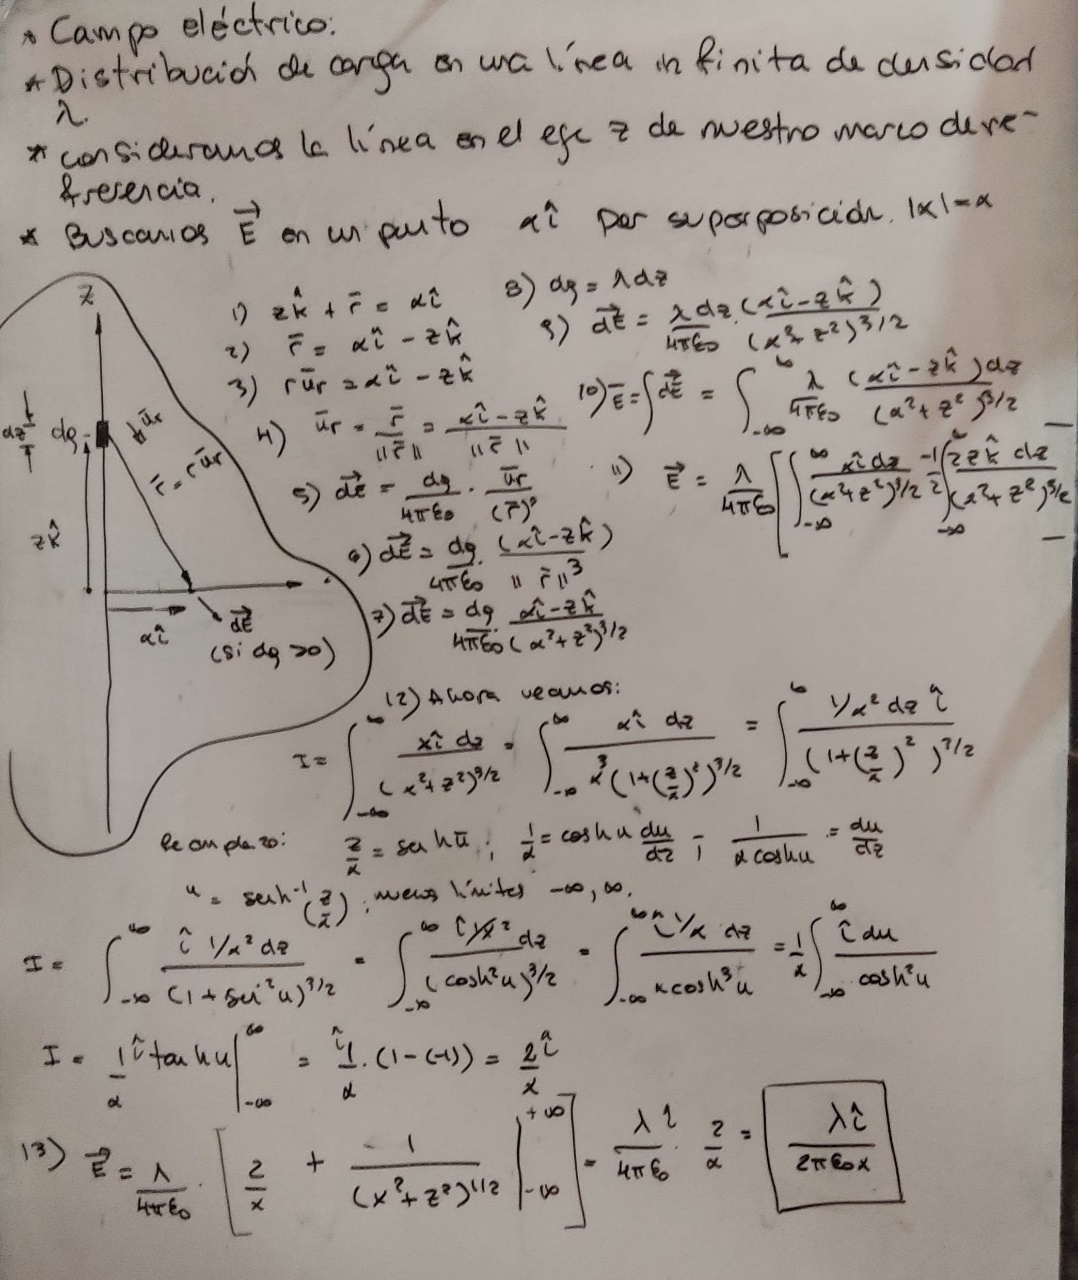 * Campo eléctrico:
* Distribución de carga en una línea infinita de densidad
λ.
* consideramos la línea en el eje z de nuestro marco de re-
ferencia.
* Buscamos E⃗ en un punto xî por superposición. |x|=x
z
dz
dq
ûr
r̄ = r ūr
zk̂
xî
dE⃗
(si dq >0)
1) zk̂ + r̄ = xî
2) r̄ = xî - zk̂
3) r ūr = xî - zk̂
4) ūr = r̄/||r̄|| = (xî - zk̂)/||r̄||
5) dE⃗ = dq/4πε₀ · ūr/(r̄)²
6) dE⃗ = dq/4πε₀ · (xî-zk̂)/||r̄||³
7) dE⃗ = dq/4πε₀ · (xî-zk̂)/(x²+z²)^3/2
8) dq = λdz
9) dE⃗ = λdz/4πε₀ · (xî-zk̂)/(x²+z²)^3/2
10) Ē = ∫dE⃗ = ∫_{-∞}^{∞} λ/4πε₀ (xî-zk̂)dz/(x²+z²)^3/2
11) E⃗ = λ/4πε₀ [∫_{-∞}^{∞} xî dz/(x²+z²)^3/2 - 1/2 ∫_{-∞}^{∞} 2zk̂ dz/(x²+z²)^3/2]
12) Ahora veamos:
I = ∫_{-∞}^{∞} xî dz/(x²+z²)^3/2 = ∫_{-∞}^{∞} xî dz/x³(1+(z/x)²)^3/2 = ∫_{-∞}^{∞} 1/x² dz î/(1+(z/x)²)^3/2
Reemplazo: z/x = senh u; 1/x = cosh u du/dz; 1/(x cosh u) = du/dz
u = senh⁻¹(z/x); nuevos límites -∞, ∞.
I = ∫_{-∞}^{∞} î 1/x² dz/(1+sen²u)^3/2 = ∫_{-∞}^{∞} î 1/x² dz/(cosh²u)^3/2 = ∫_{-∞}^{∞} î 1/x dz/(x cosh³u) = 1/x ∫_{-∞}^{∞} î du/cosh²u
I = 1/x î tanh u|_{-∞}^{∞} = î 1/x · (1-(-1)) = 2î/x
13) E⃗ = λ/4πε₀ · [2/x + 1/(x²+z²)^1/2 |_{-∞}^{+∞}] = λî/4πε₀ · 2/x = λî/2πε₀x